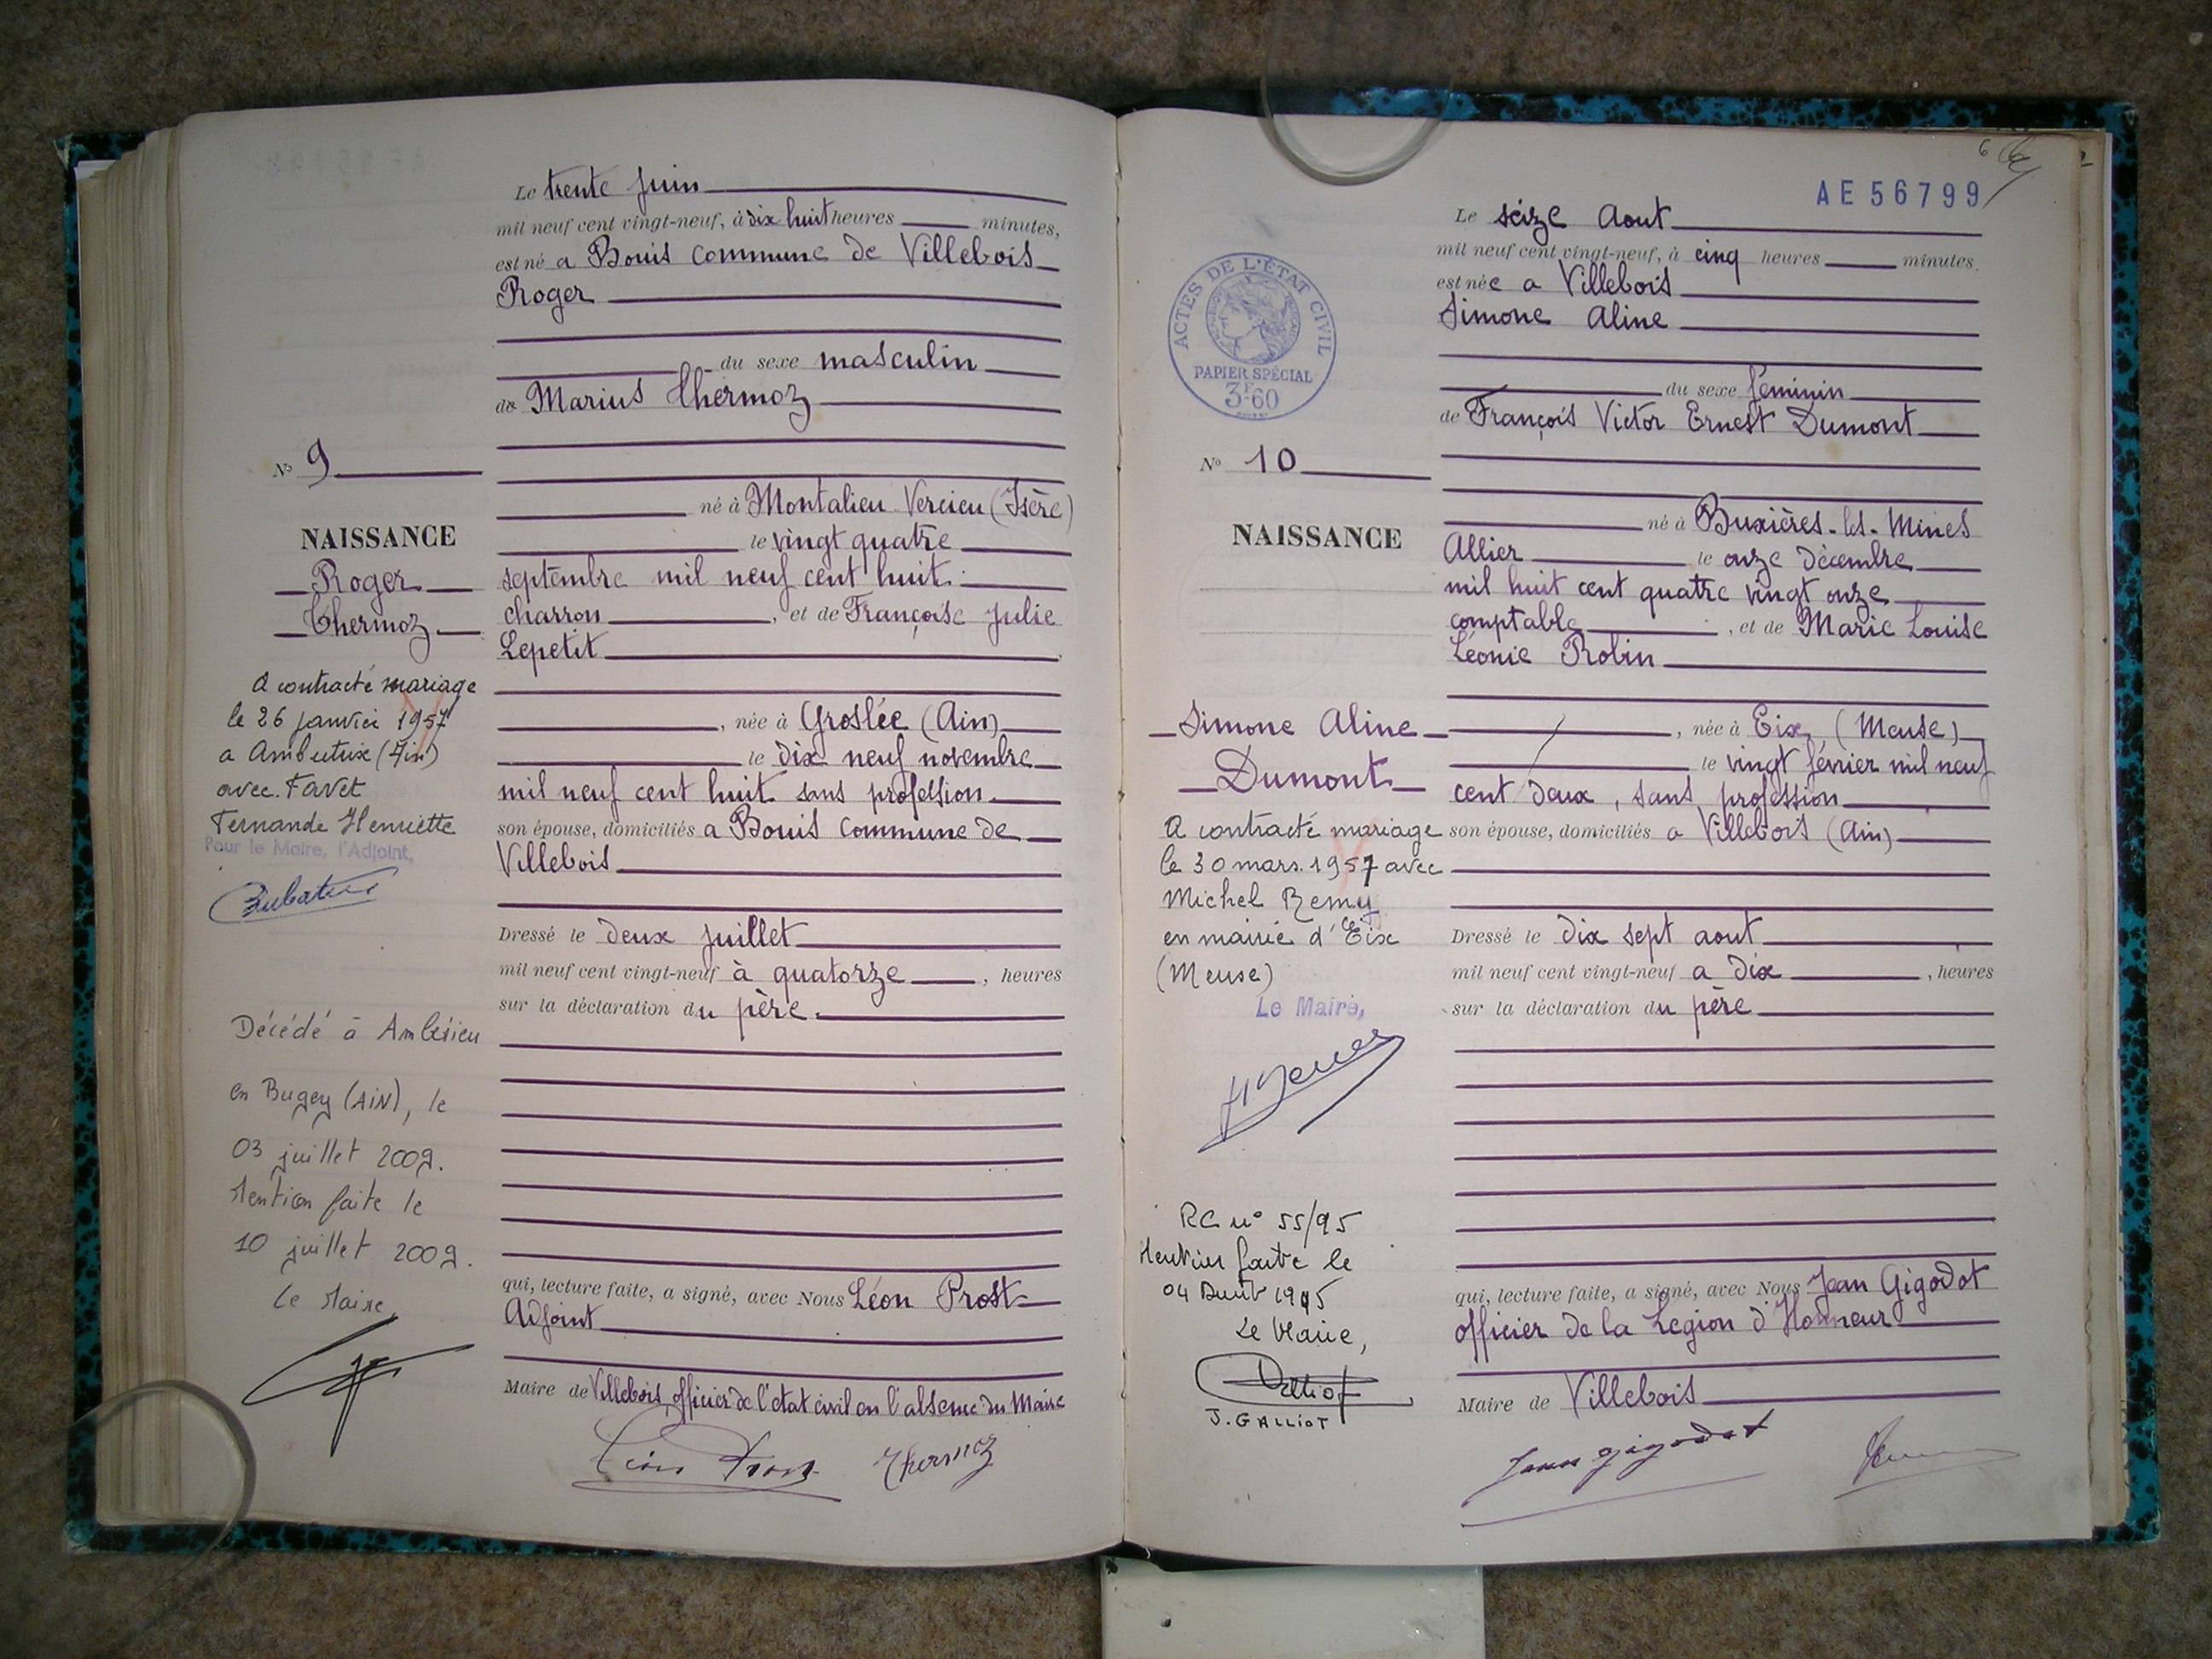 Le trente juin
mil neuf cent vingt-neuf, à dix huit heures minutes,
est né a Bouis commune de Villebois
Roger
du sexe masculin
de Marius Thermoz
né à Montalieu Vercieu (Isère)
le vingt quatre
septembre mil neuf cent huit
charron, et de Françoise Julie
Lepetit
, née à Groslée (Ain)
le dix neuf novembre
mil neuf cent huit sans profession
son épouse, domiciliés a Bouis commune de
Villebois
Dressé le deux juillet
mil neuf cent vingt-neuf à quatorze, heures
sur la déclaration du père.
qui, lecture faite, a signé, avec Nous Léon Prost
Adjoint
Maire de Villebois, officier de l'état civil en l'absence du Maire
Thermoz
No 9
NAISSANCE
Roger
Thermoz
A contracté mariage
le 26 janvier 1957
a Ambutrix (Ain)
avec Favet
Fernande Henriette
Pour le Maire, l'Adjoint,
Décédé à Ambérieu
en Bugey (AIN), le
03 juillet 2009.
Mention faite le
10 juillet 2009.
Le Maire,
6
AE 56799
Le seize Aout
mil neuf cent vingt-neuf, à cinq heures minutes.
est née a Villebois
Simone Aline
du sexe féminin
de François Victor Ernest Dumont
né à Buxières-les-Mines
Allier le onze décembre
mil huit cent quatre vingt onze
comptable, et de Marie Louise
Léonie Robin
, née à Eix, (Meuse)
le vingt février mil neuf
cent deux, sans profession
son épouse, domiciliés a Villebois (Ain)
Dressé le dix sept aout
mil neuf cent vingt-neuf a dix, heures
sur la déclaration du père
qui, lecture faite, a signé, avec Nous Jean Gigodot
officier de la Légion d'Honneur
Maire de Villebois
Jean Gigodot
ACTES DE L'ÉTAT CIVIL
PAPIER SPÉCIAL
3F60
No 10
NAISSANCE
Simone Aline
Dumont
A contracté mariage
le 30 mars 1957 avec
Michel Remy
en mairie d'Eix
(Meuse)
Le Maire,
RC n° 55/95
Mention faite le
04 Août 1995
Le Maire,
J. GALLIOT